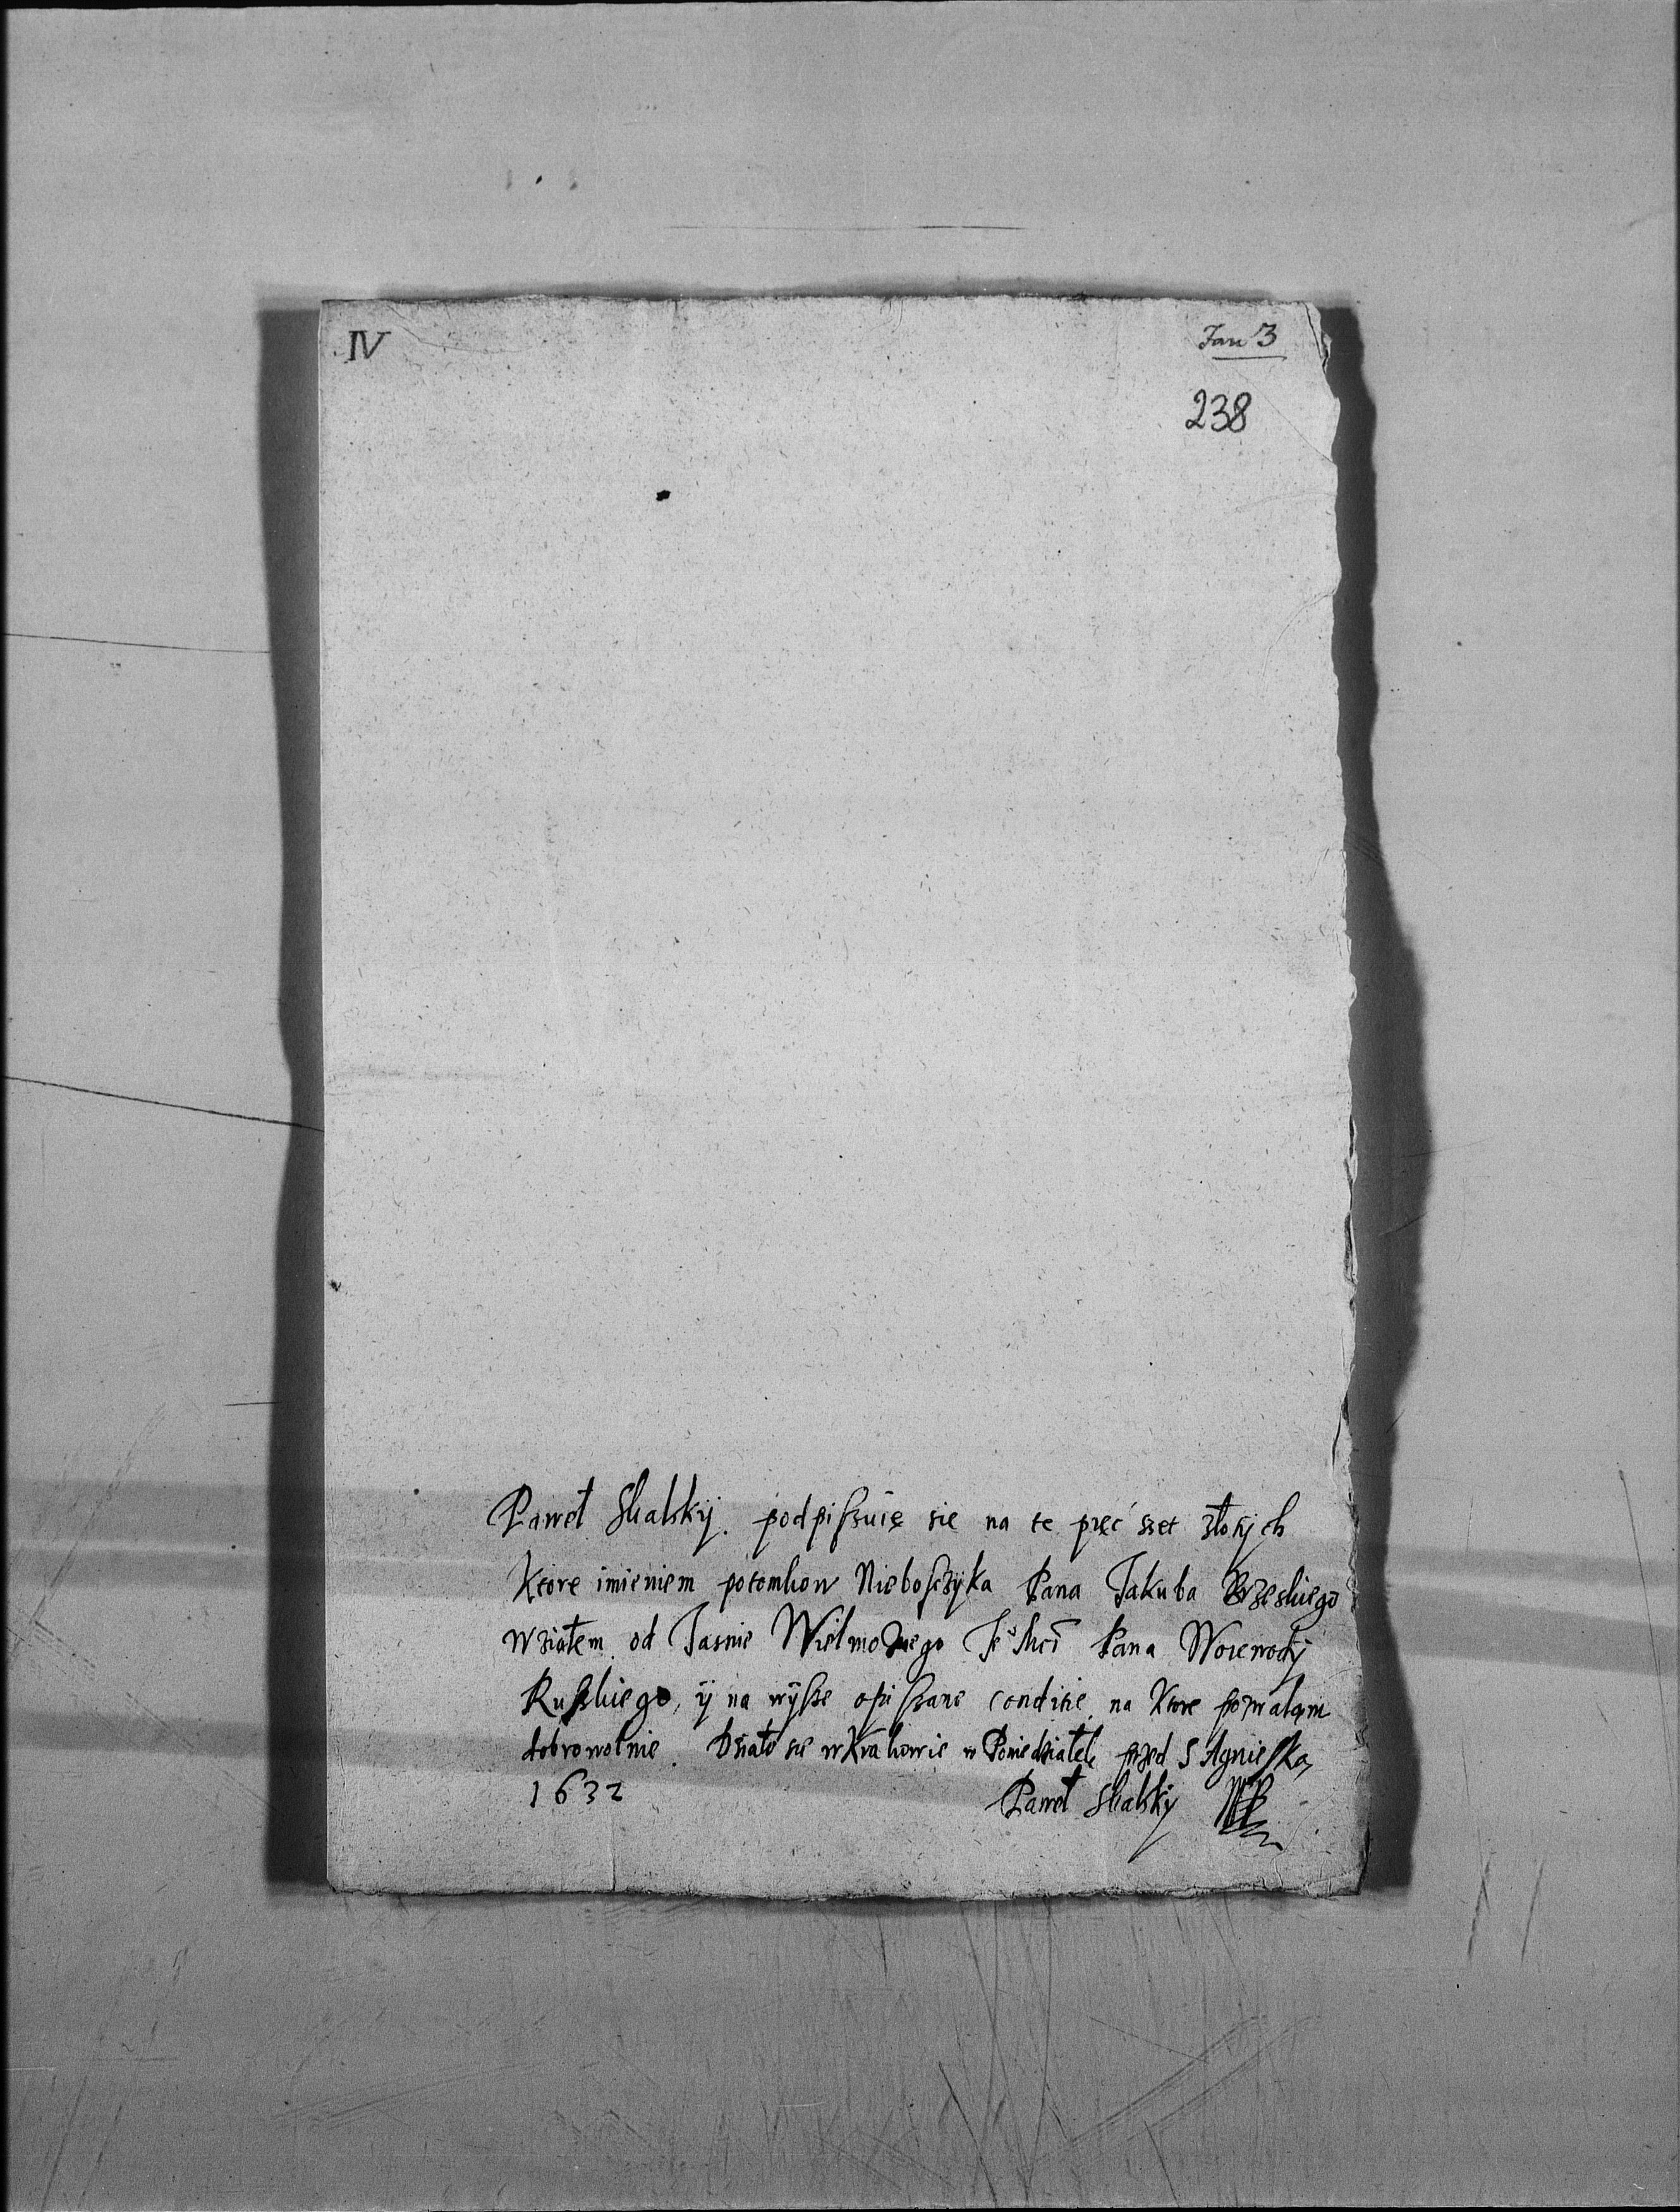 IV
Jan 3
238
Paweł Skalskÿ. podpiſzuię się na te pięć szet złotych
Ktore imieniem potomkow Nieboſczÿka Pana Jakuba Brzeskiego
Wziałem od Jasnie Wielmożnego Je° Mći Pana Woiewodÿ
Ruſkiego, ÿ na wÿſze opiſzane conditie, na Ktore pozwalam
dobrowolnie. Działo sie w Krakowie w Poniedziałek przed S Agnieſką
1632
Paweł Skalskÿ